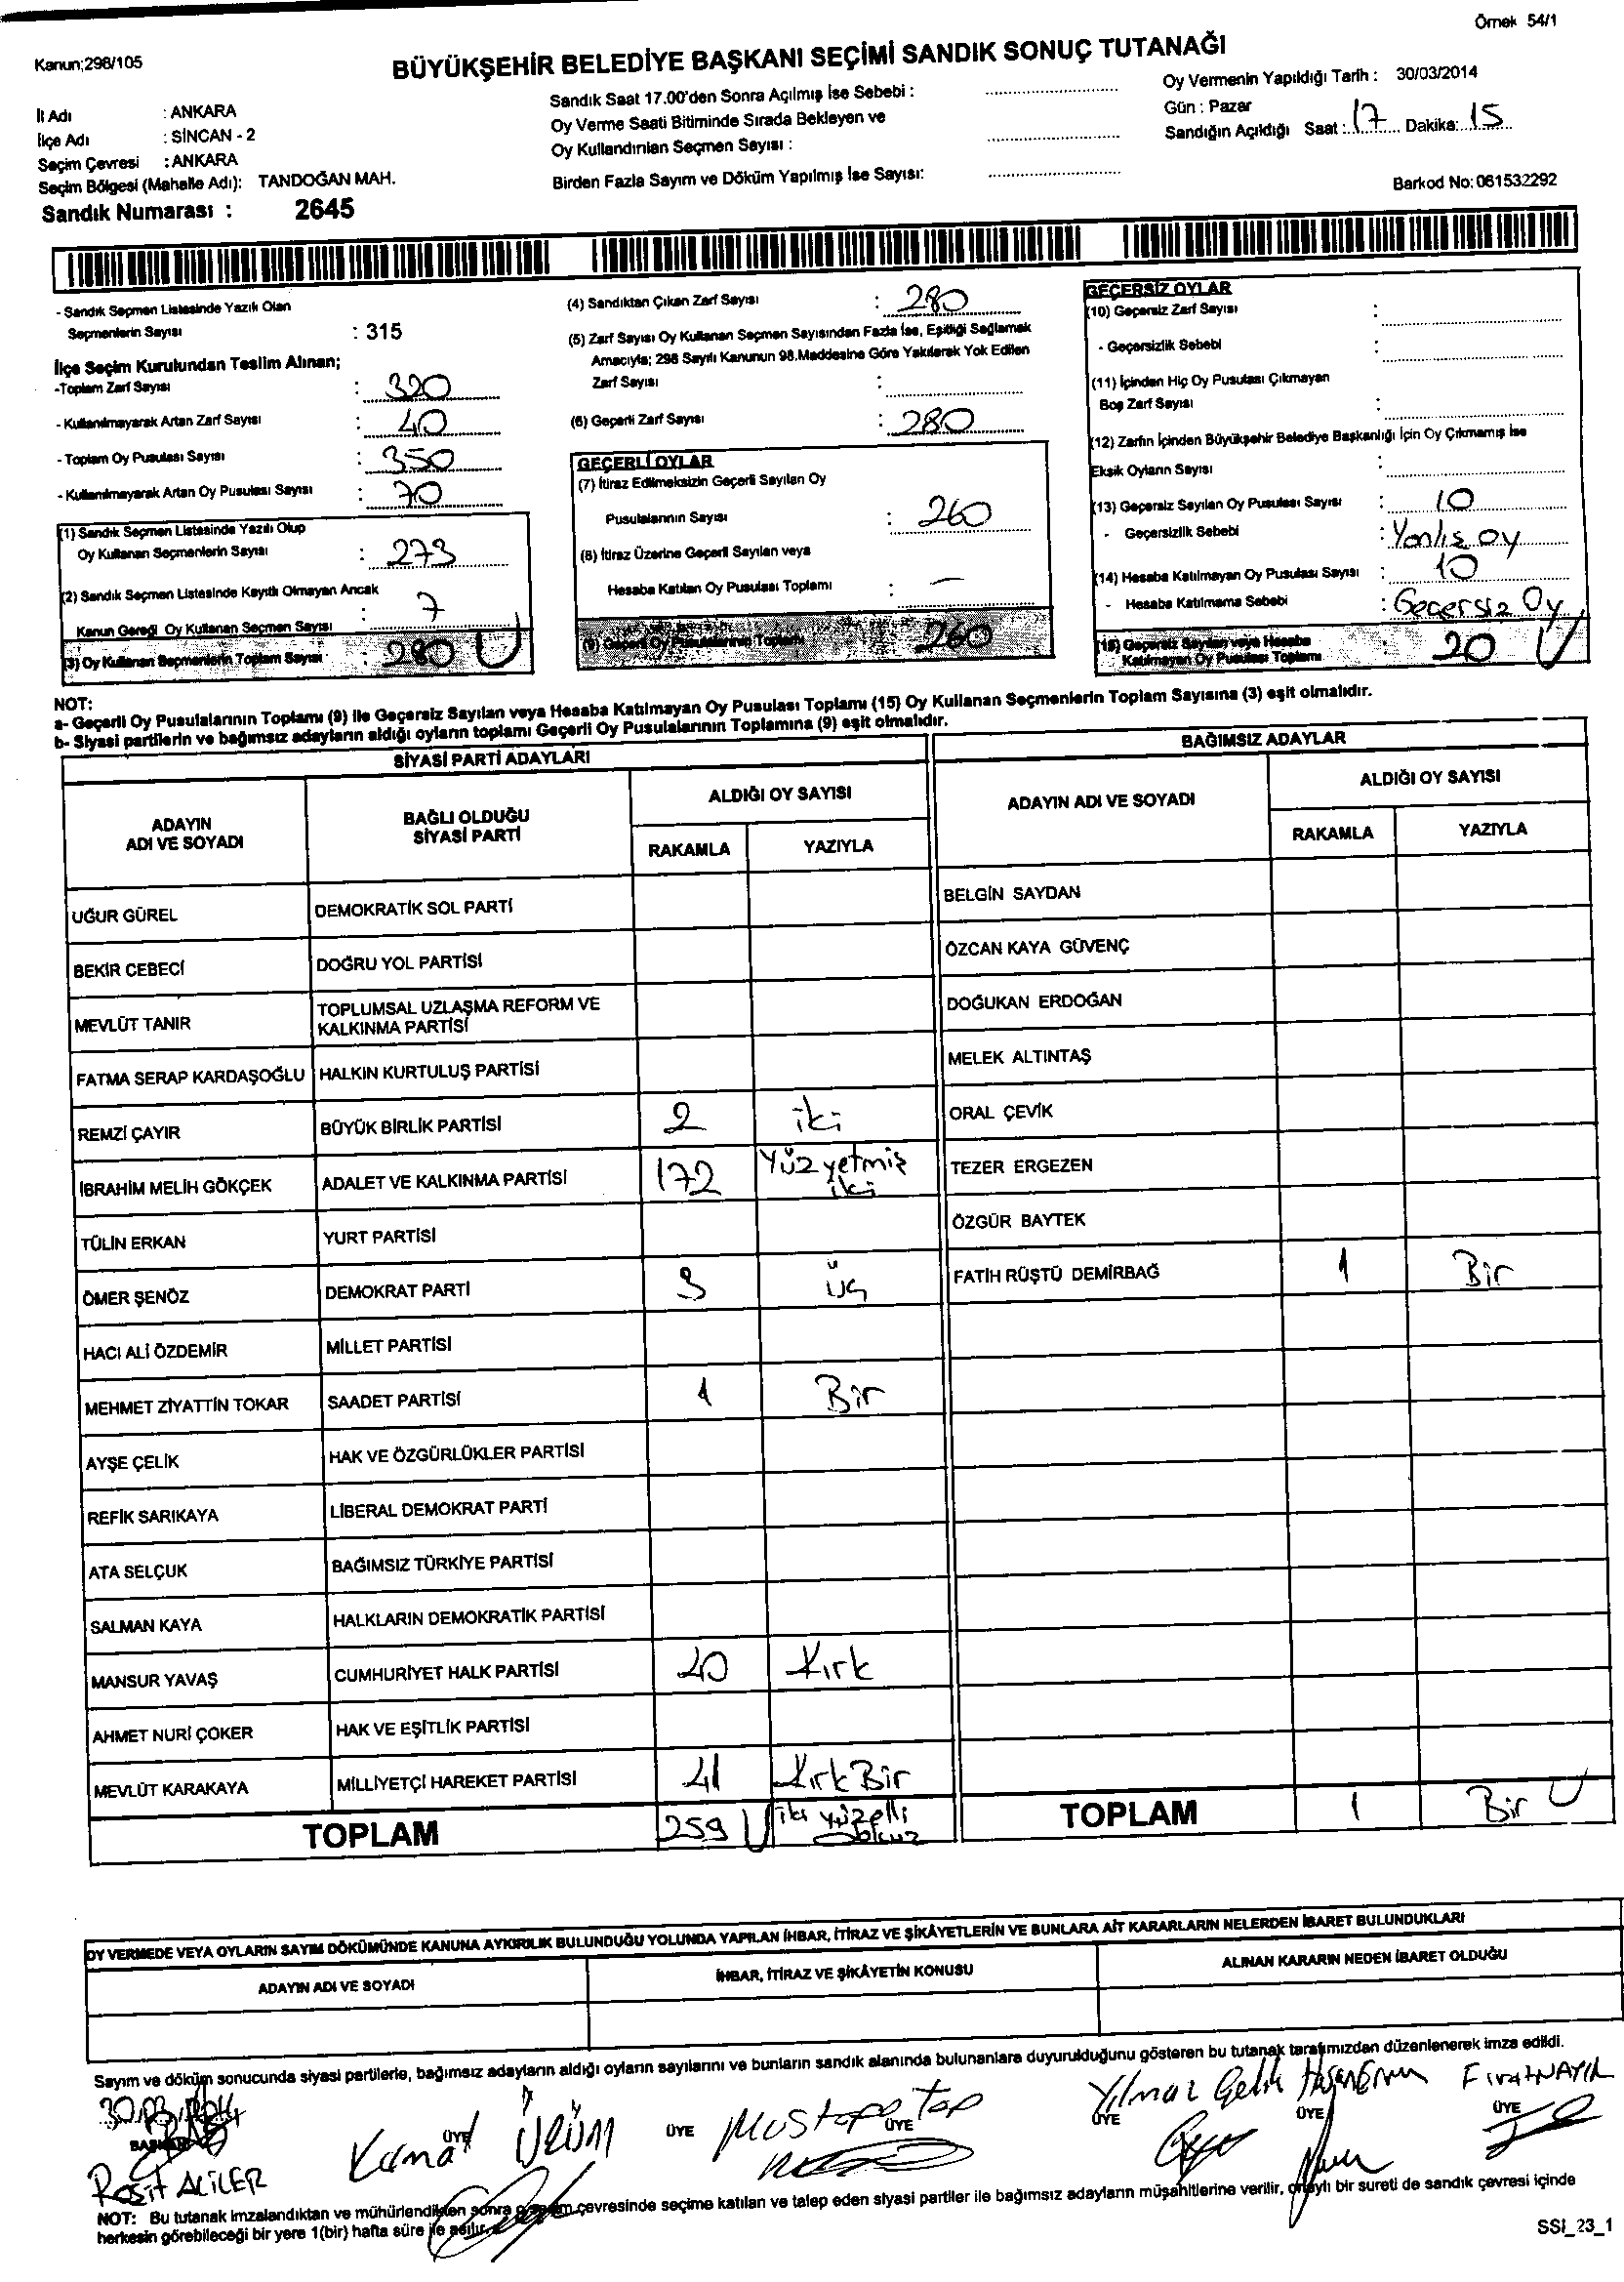 Örnek 54/1
Kanun;298/105
BÜYÜKŞEHİR BELEDİYE BAŞKANI SEÇİMİ SANDIK SONUÇ TUTANAĞI
İl Adı : ANKARA
İlçe Adı : SİNCAN - 2
Seçim Çevresi : ANKARA
Seçim Bölgesi (Mahalle Adı): TANDOĞAN MAH.
Sandık Numarası : 2645
Sandık Saat 17.00'den Sonra Açılmış İse Sebebi :
Oy Verme Saati Bitiminde Sırada Bekleyen ve
Oy Kullandırılan Seçmen Sayısı :
Birden Fazla Sayım ve Döküm Yapılmış İse Sayısı:
Oy Vermenin Yapıldığı Tarih : 30/03/2014
Gün : Pazar
Sandığın Açıldığı Saat : 17 Dakika: 15
Barkod No: 061532292
- Sandık Seçmen Listesinde Yazılı Olan
Seçmenlerin Sayısı : 315
İlçe Seçim Kurulundan Teslim Alınan;
-Toplam Zarf Sayısı : 320
- Kullanılmayarak Artan Zarf Sayısı : 40
- Toplam Oy Pusulası Sayısı : 350
- Kullanılmayarak Artan Oy Pusulası Sayısı : 70
(1) Sandık Seçmen Listesinde Yazılı Olup
Oy Kullanan Seçmenlerin Sayısı : 273
(2) Sandık Seçmen Listesinde Kayıtlı Olmayan Ancak
Kanun Gereği Oy Kullanan Seçmen Sayısı : 7
(3) Oy Kullanan Seçmenlerin Toplam Sayısı : 280
(4) Sandıktan Çıkan Zarf Sayısı : 280
(5) Zarf Sayısı Oy Kullanan Seçmen Sayısından Fazla İse, Eşitliği Sağlamak
Amacıyla; 298 Sayılı Kanunun 98.Maddesine Göre Yakılarak Yok Edilen
Zarf Sayısı :
(6) Geçerli Zarf Sayısı : 280
GEÇERLİ OYLAR
(7) İtiraz Edilmeksizin Geçerli Sayılan Oy
Pusulalarının Sayısı : 260
(8) İtiraz Üzerine Geçerli Sayılan veya
Hesaba Katılan Oy Pusulası Toplamı : —
(9) Geçerli Oy Pusulalarının Toplamı 260
GEÇERSİZ OYLAR
(10) Geçersiz Zarf Sayısı :
- Geçersizlik Sebebi :
(11) İçinden Hiç Oy Pusulası Çıkmayan
Boş Zarf Sayısı :
(12) Zarfın İçinden Büyükşehir Belediye Başkanlığı İçin Oy Çıkmamış İse
Eksik Oyların Sayısı :
(13) Geçersiz Sayılan Oy Pusulası Sayısı : 10
- Geçersizlik Sebebi : Yanlış oy
(14) Hesaba Katılmayan Oy Pusulası Sayısı : 10
- Hesaba Katılmama Sebebi : Geçersiz Oy
(15) Geçersiz Sayılan veya Hesaba
Katılmayan Oy Pusulası Toplamı : 20
NOT:
a- Geçerli Oy Pusulalarının Toplamı (9) ile Geçersiz Sayılan veya Hesaba Katılmayan Oy Pusulası Toplamı (15) Oy Kullanan Seçmenlerin Toplam Sayısına (3) eşit olmalıdır.
b- Siyasi partilerin ve bağımsız adayların aldığı oyların toplamı Geçerli Oy Pusulalarının Toplamına (9) eşit olmalıdır.
SİYASİ PARTİ ADAYLARI
ADAYIN ADI VE SOYADI BAĞLI OLDUĞU SİYASİ PARTİ ALDIĞI OY SAYISI
RAKAMLA YAZIYLA
UĞUR GÜREL DEMOKRATİK SOL PARTİ
BEKİR CEBECİ DOĞRU YOL PARTİSİ
MEVLÜT TANIR TOPLUMSAL UZLAŞMA REFORM VE
KALKINMA PARTİSİ
FATMA SERAP KARDAŞOĞLU HALKIN KURTULUŞ PARTİSİ
REMZİ ÇAYIR BÜYÜK BİRLİK PARTİSİ 2 iki
İBRAHİM MELİH GÖKÇEK ADALET VE KALKINMA PARTİSİ 172 Yüzyetmiş iki
TÜLİN ERKAN YURT PARTİSİ
ÖMER ŞENÖZ DEMOKRAT PARTİ 3 üç
HACI ALİ ÖZDEMİR MİLLET PARTİSİ
MEHMET ZİYATTİN TOKAR SAADET PARTİSİ 1 Bir
AYŞE ÇELİK HAK VE ÖZGÜRLÜKLER PARTİSİ
REFİK SARIKAYA LİBERAL DEMOKRAT PARTİ
ATA SELÇUK BAĞIMSIZ TÜRKİYE PARTİSİ
SALMAN KAYA HALKLARIN DEMOKRATİK PARTİSİ
MANSUR YAVAŞ CUMHURİYET HALK PARTİSİ 40 Kırk
AHMET NURİ ÇOKER HAK VE EŞİTLİK PARTİSİ
MEVLÜT KARAKAYA MİLLİYETÇİ HAREKET PARTİSİ 41 Kırk Bir
TOPLAM 259 iki yüzelli dokuz
BAĞIMSIZ ADAYLAR
ADAYIN ADI VE SOYADI ALDIĞI OY SAYISI
RAKAMLA YAZIYLA
BELGİN SAYDAN
ÖZCAN KAYA GÜVENÇ
DOĞUKAN ERDOĞAN
MELEK ALTINTAŞ
ORAL ÇEVİK
TEZER ERGEZEN
ÖZGÜR BAYTEK
FATİH RÜŞTÜ DEMİRBAĞ 1 Bir
TOPLAM 1 Bir
OY VERMEDE VEYA OYLARIN SAYIM DÖKÜMÜNDE KANUNA AYKIRILIK BULUNDUĞU YOLUNDA YAPILAN İHBAR, İTİRAZ VE ŞİKÂYETLERİN VE BUNLARA AİT KARARLARIN NELERDEN İBARET BULUNDUKLARI
ADAYIN ADI VE SOYADI İHBAR, İTİRAZ VE ŞİKÂYETİN KONUSU ALINAN KARARIN NEDEN İBARET OLDUĞU
Sayım ve döküm sonucunda siyasi partilerle, bağımsız adayların aldığı oyların sayılarını ve bunların sandık alanında bulunanlara duyurulduğunu gösteren bu tutanak tarafımızdan düzenlenerek imza edildi.
30.03.2014
BAŞKAN ÜYE ÜYE ÜYE ÜYE ÜYE ÜYE
Raşit ALİLER Kamat ÜZÜM Mustafa Top Yılmaz Çelik Fırat NAYIR
NOT: Bu tutanak imzalandıktan ve mühürlendikten sonra o seçim çevresinde seçime katılan ve talep eden siyasi partiler ile bağımsız adayların müşahitlerine verilir, onaylı bir sureti de sandık çevresi içinde
herkesin görebileceği bir yere 1(bir) hafta süre ile asılır.
SSI_23_1